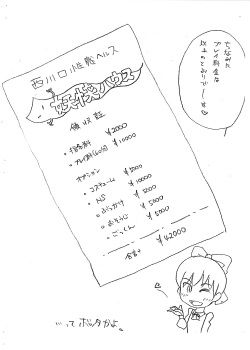 ちなみに
プレイ料金は
以上のとおりでーす♡
西川口性感ヘルス
妖怪ハウス
領収証
・指名料 ¥2000
・プレイ料(60分) ¥10000
オプション
・コスチューム ¥5000
・NS ¥10000
・ぶっかけ ¥5000
・おそうじ ¥5000
・ごっくん ¥5000
合計 ¥42000
…ってボッタかよ。